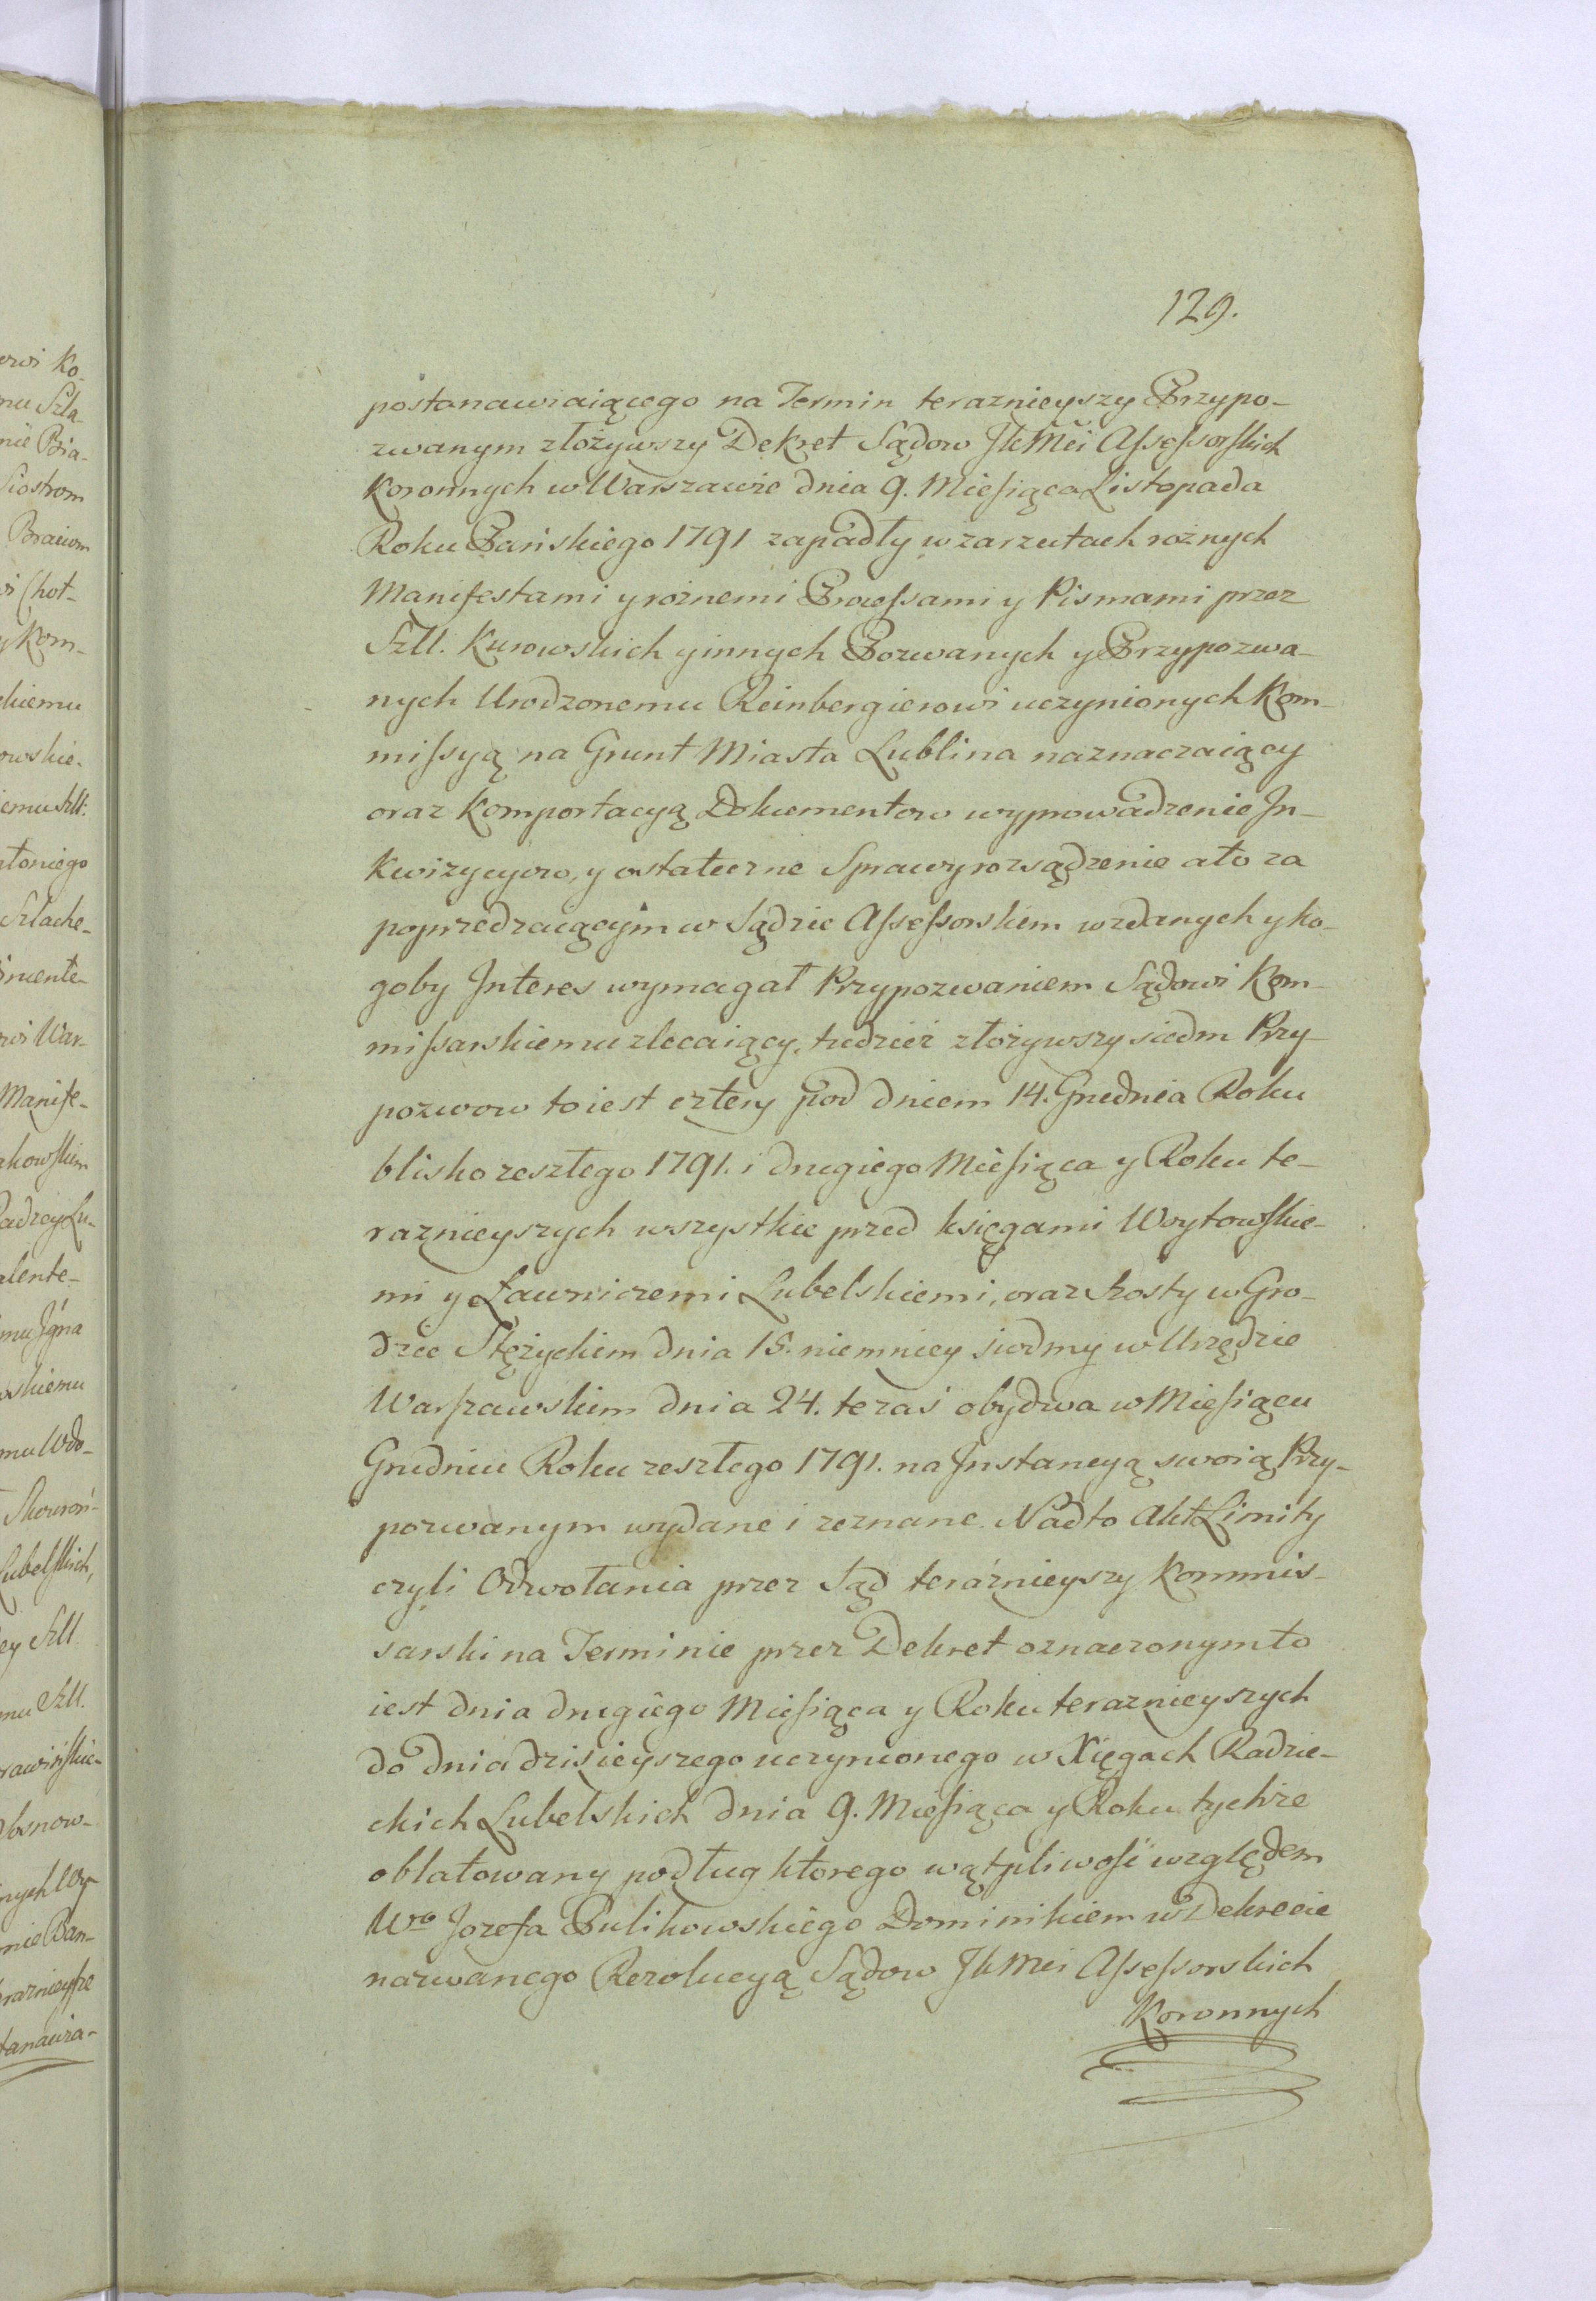 129.
postanawiaiącego na Termin teraznieyszy Przypo-
zwanym złożywszy Dekret Sądow JKMci Assessorskich
Koronnych w Warszawie dnia 9. Miesiąca Listopada
Roku Pańskiego 1791 zapadły w zarzutach rożnych
Manifestami y rożnemi Processami y Pismami przez
Szll. Kurowskich y innych Pozwanych y Przypozwa-
nych Urodzonemu Reinbergierowi uczynionych Kom-
missyą na Grunt Miasta Lublina naznaczaiący
oraz Komportacyą Dokumentow wyprowadzenie In-
kwizycyow, y ostateczne Sprawy rozsądzenie a to za
poprzedzaiącym w Sądzie Assessorskiem wzdanych y ko-
goby Interes wymagał Przypozwaniem Sądowi Kom-
missarskiemu zlecaiący, tudzież złożywszy siedm Przy-
pozwow to iest cztery pod dniem 14. Grudnia Roku
blisko zeszłego 1791. i drugiego Miesiąca y Roku te-
raznieyszych wszystkie przed księgami Woytowskie-
mi y Ławniczemi Lubelskiemi, oraz szosty w Gro-
dzie Stężyckiem dnia 15. niemniey siodmy w Urzędzie
Warszawskim dnia 24. te zaś obydwa w Miesiącu
Grudniu Roku zeszłego 1791. na Instancyą swoią Przy-
pozwanym wydane i zeznane. Nadto Akt Limity
czyli Odwołania przez Sąd teraźnieyszy Kommis-
sarski na Terminie przez Dekret oznaczonym to
iest dnia drugiego Miesiąca y Roku teraznieyszych
do dnia dzisieyszego uczynionego w Xięgach Radzie-
ckich Lubelskich dnia 9. Miesiąca y Roku tychże
oblatowany podług ktorego wątpliwość względem
Wgo Jozefa Pulikowskiego Dominikiem w Dekrecie
nazwanego Rezolucyą Sądow JKMci Assessorskich
Koronnych
owi Ko-
mu Szla-
Bra-
Siostrom
Braciom
Chot-
y Kom-
skiemu
owskie-
iemu Szll:
Szlache-
Manife-
Radzcy Lu-
alente-
mu Jgna
wskiemu
mu Wdo-
Lubelskich,
ey Szll.
mu Szll.
nych Wy-
nie Ban-
raznieysze
tanawia-